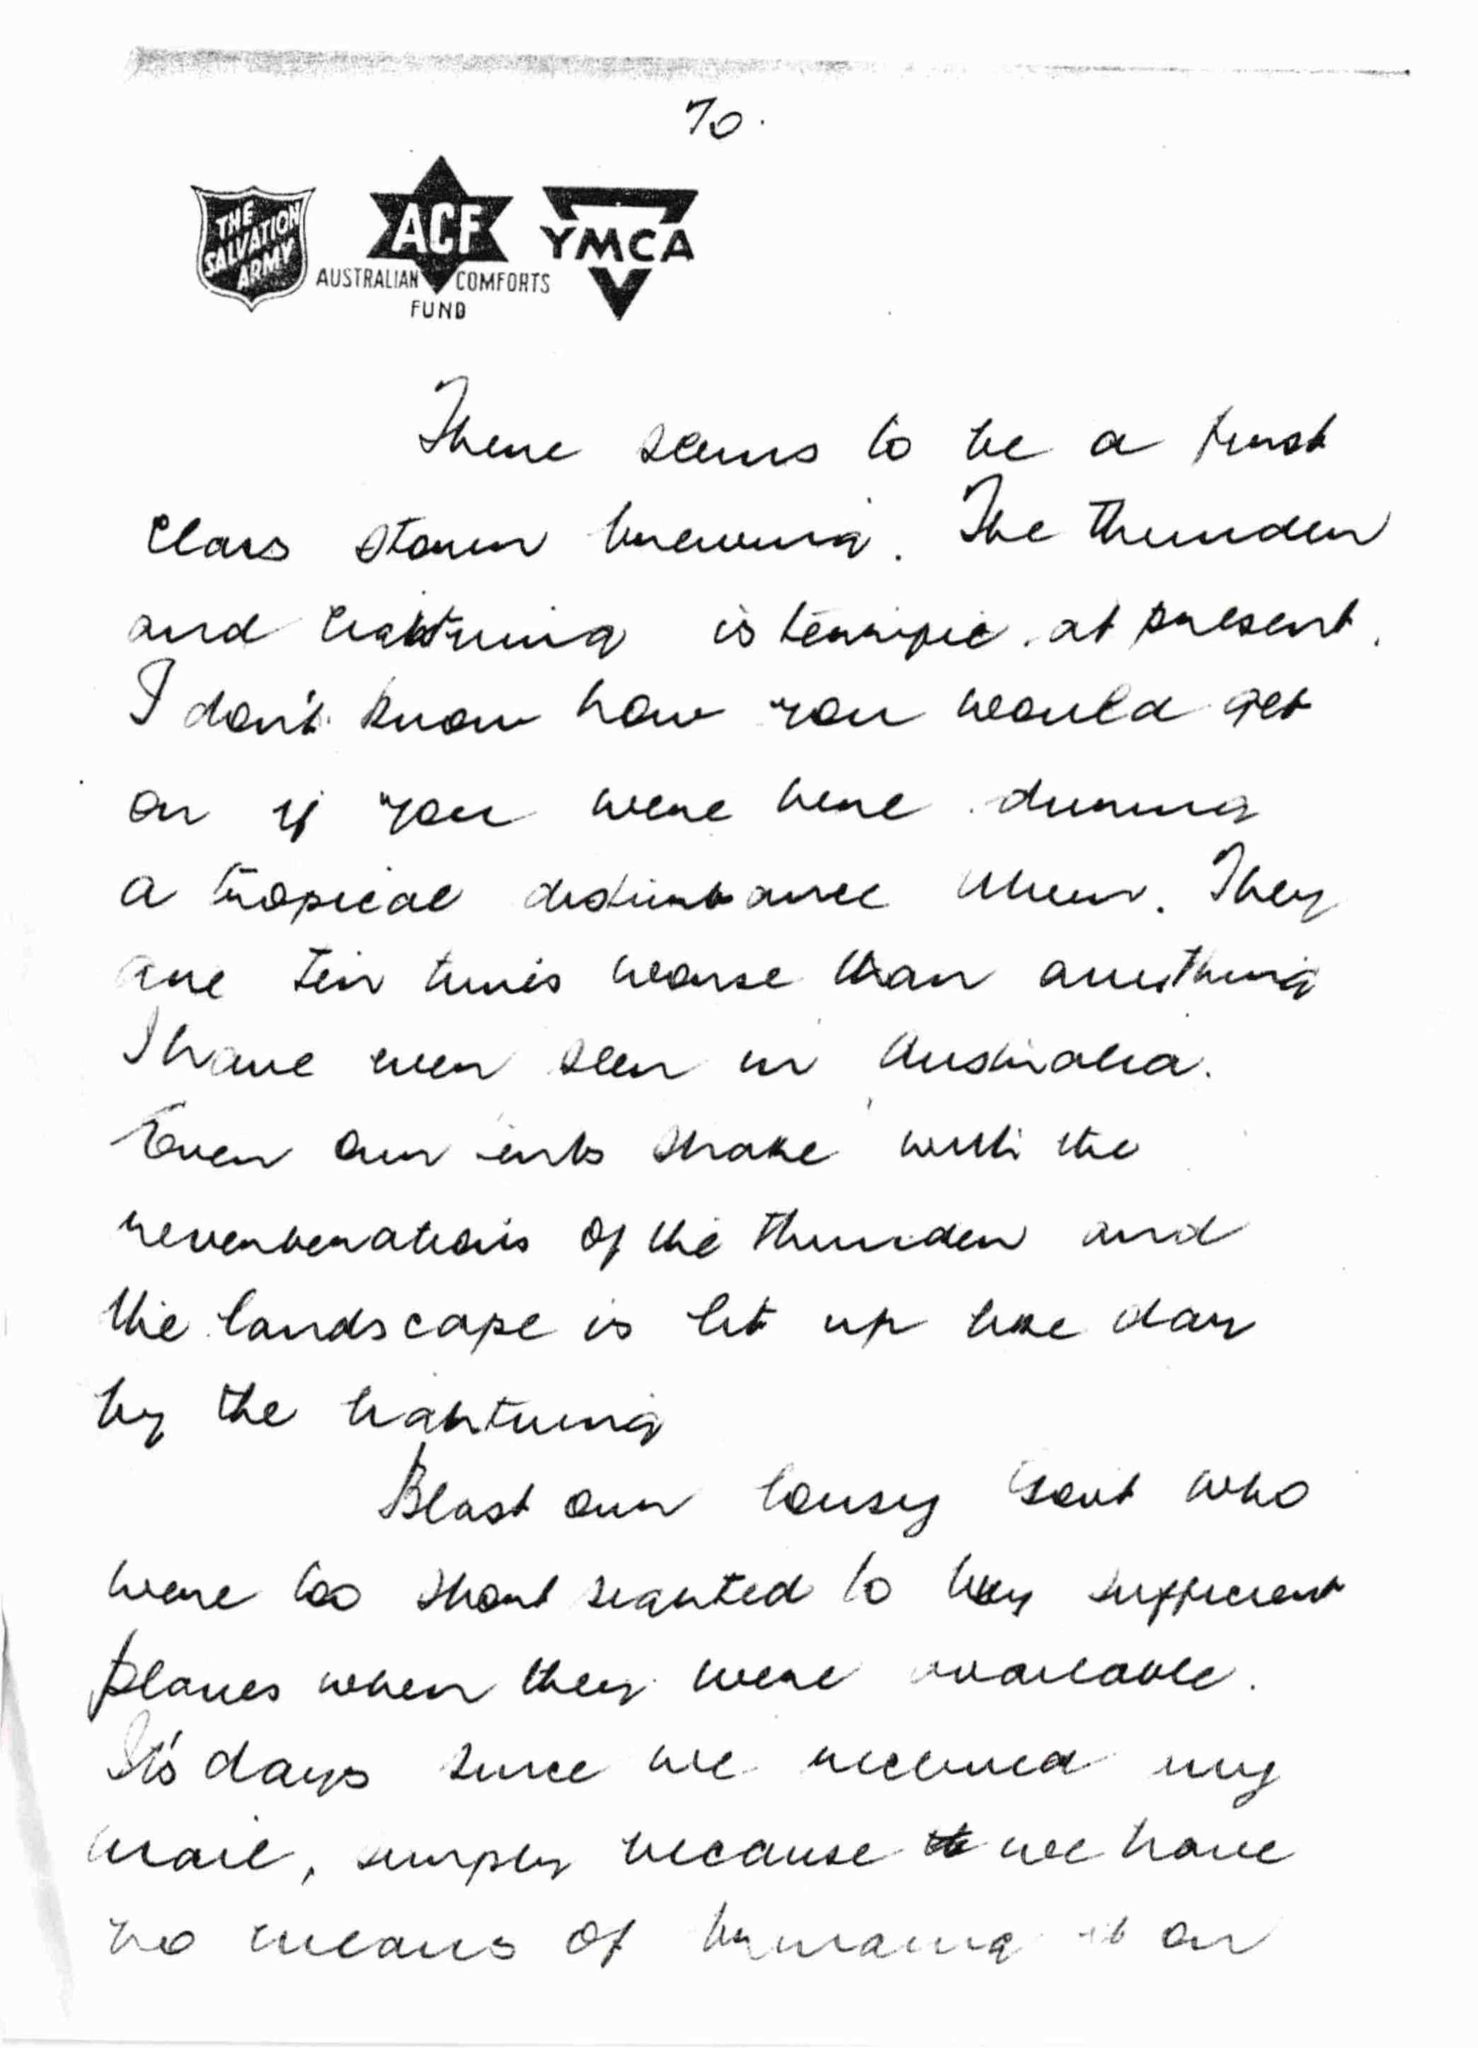 70.
THE SALVATION ARMY
ACF
AUSTRALIAN COMFORTS FUND
YMCA
There seems to be a first
class storm brewing. The thunder
and lightning is terrific at present.
I don't know how you would get
on if you were here during
a tropical disturbance. They
are ten times worse than anything
I have ever seen in Australia.
Even our shake with the
reverberations of the thunder and
the landscape is lit up like day
by the lightning
Blast our lousy Govt who
were too short sighted to buy sufficient
planes when they were available.
It's days since we received any
mail, simply because we have
no means of bringing it on